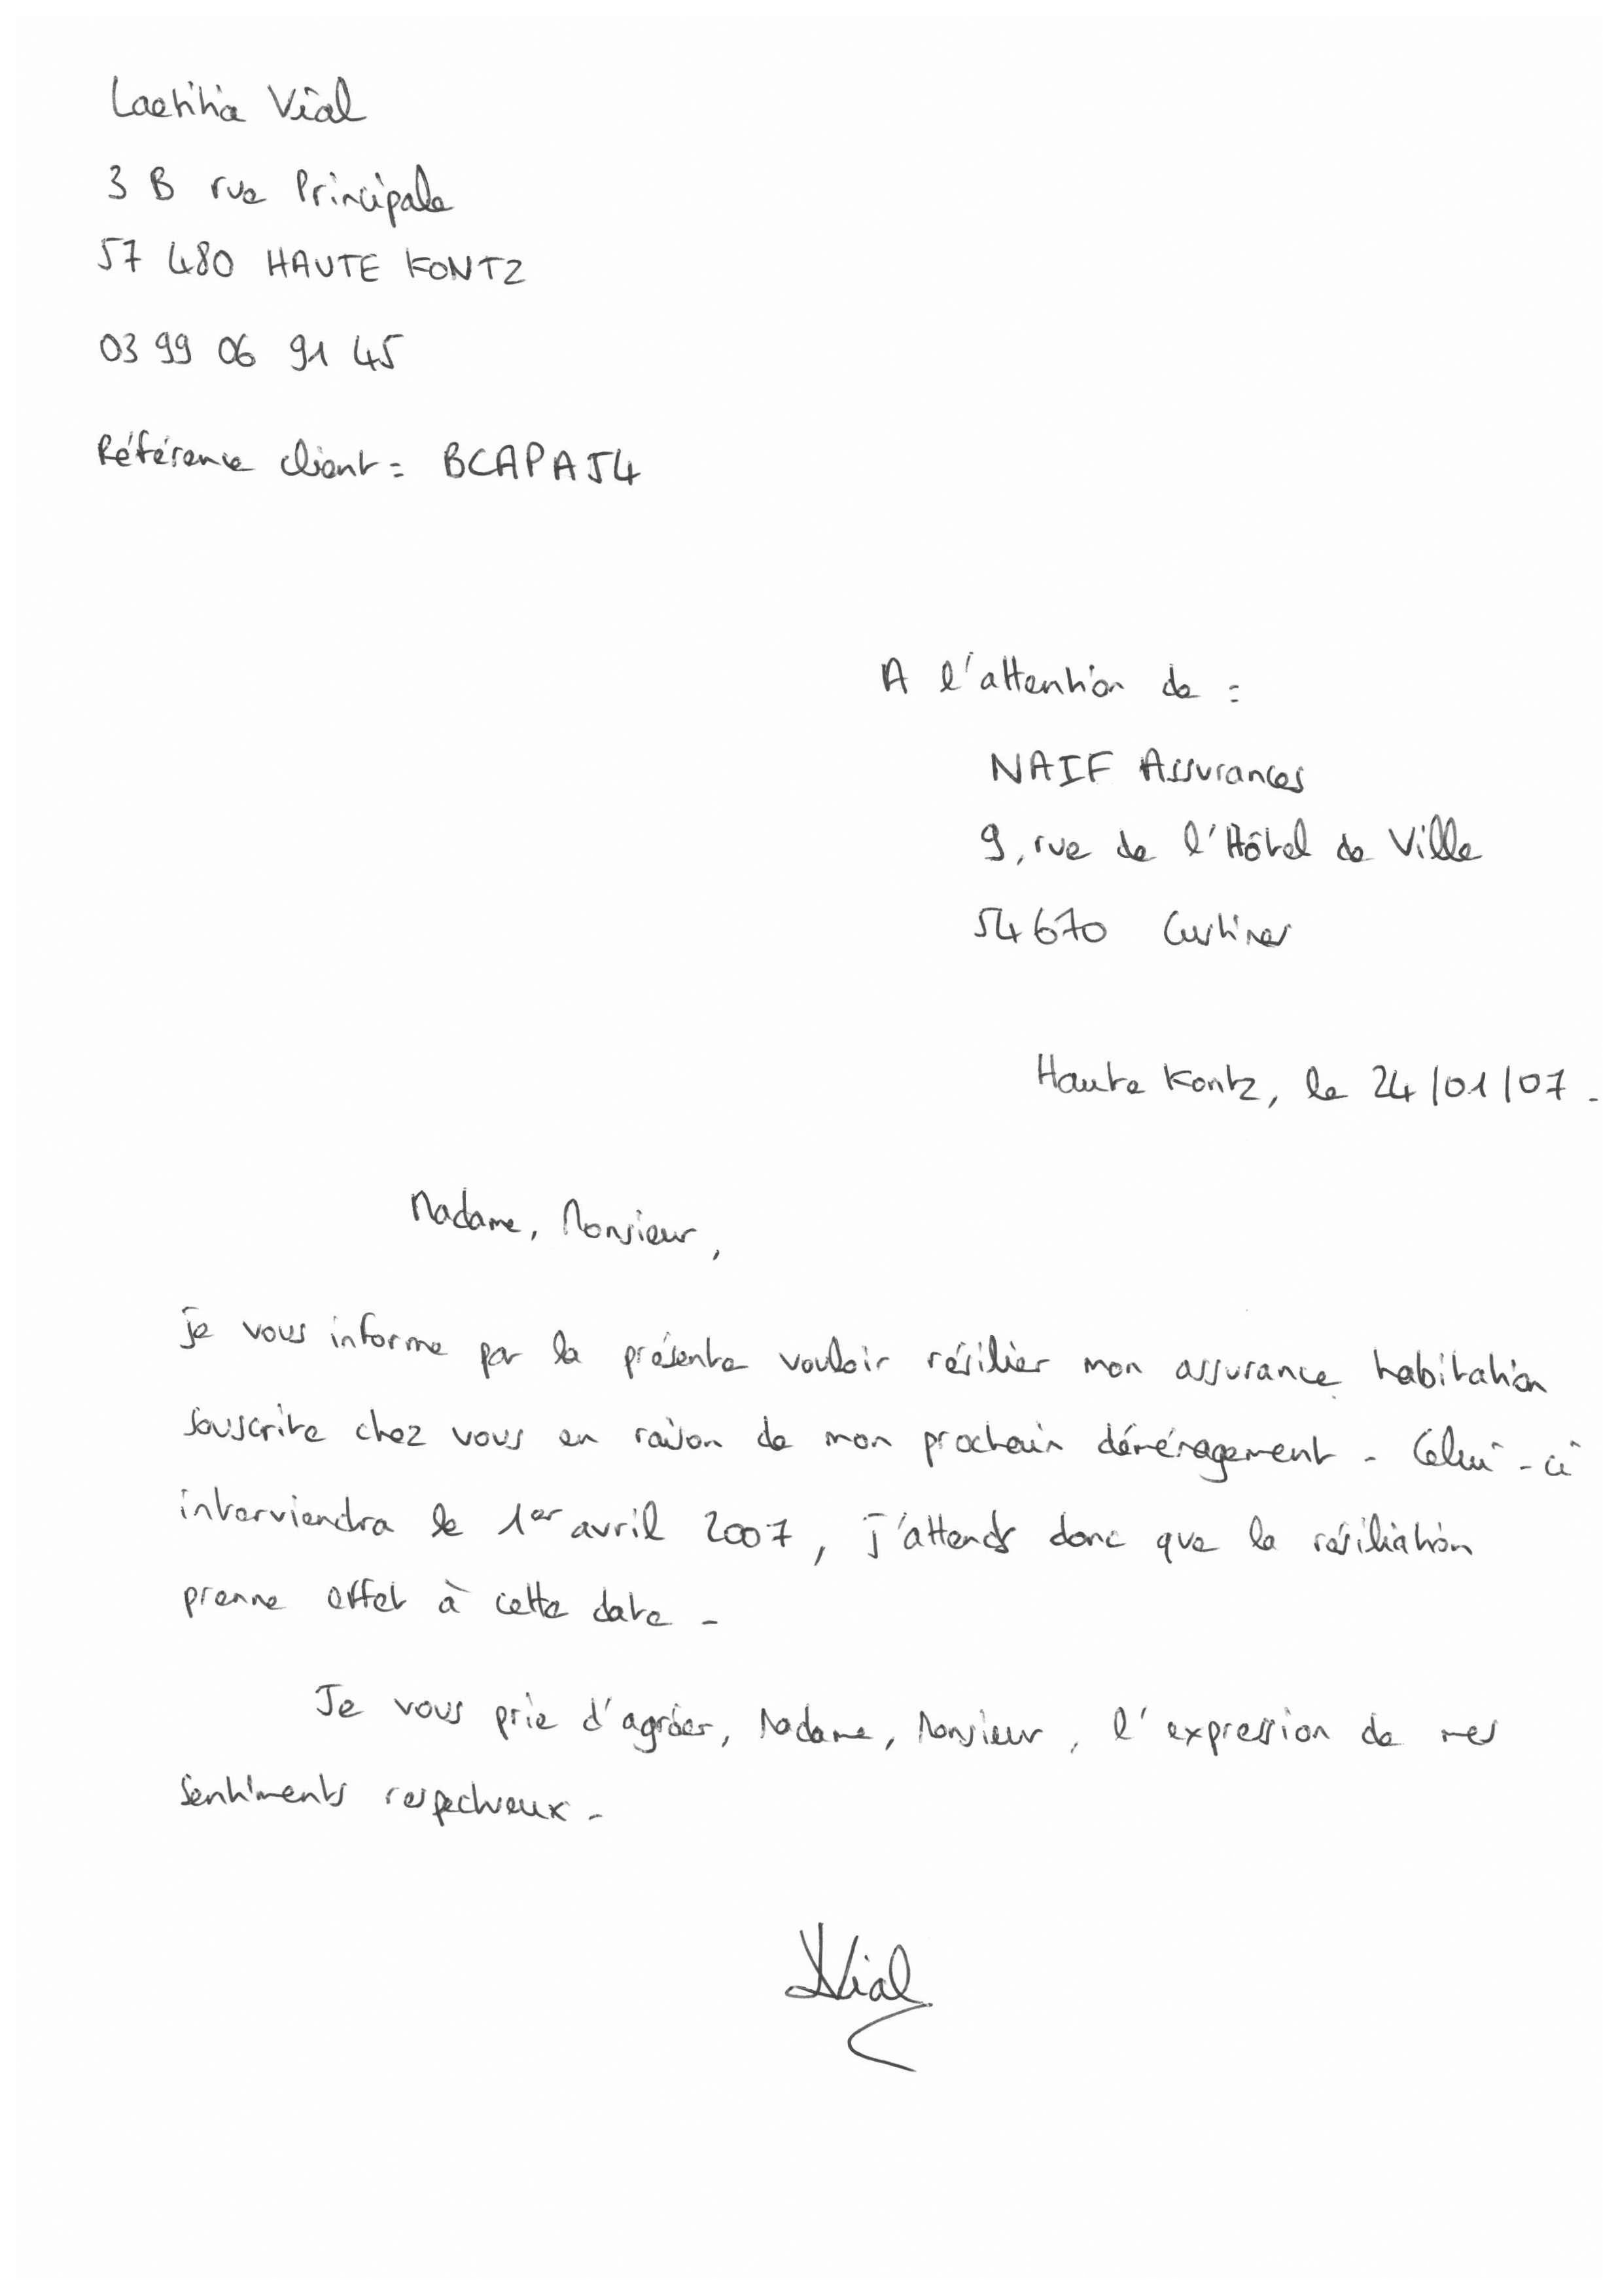 Laetitia Vial
3 B rue Principale
57 480 HAUTE KONTZ
03 99 06 91 45
Référence client : BCAPA54
A l'attention de :
NAIF Assurances
9, rue de l'Hôtel de Ville
54670 Custines
Haute Kontz, le 24/01/07.
Madame, Monsieur,
je vous informe par la présente vouloir résilier mon assurance habitation
souscrite chez vous en raison de mon prochain déménagement. Celui-ci
interviendra le 1er avril 2007, j'attends donc que la résiliation
prenne effet à cette date.
Je vous prie d'agréer, Madame, Monsieur, l'expression de mes
sentiments respectueux.
LVial